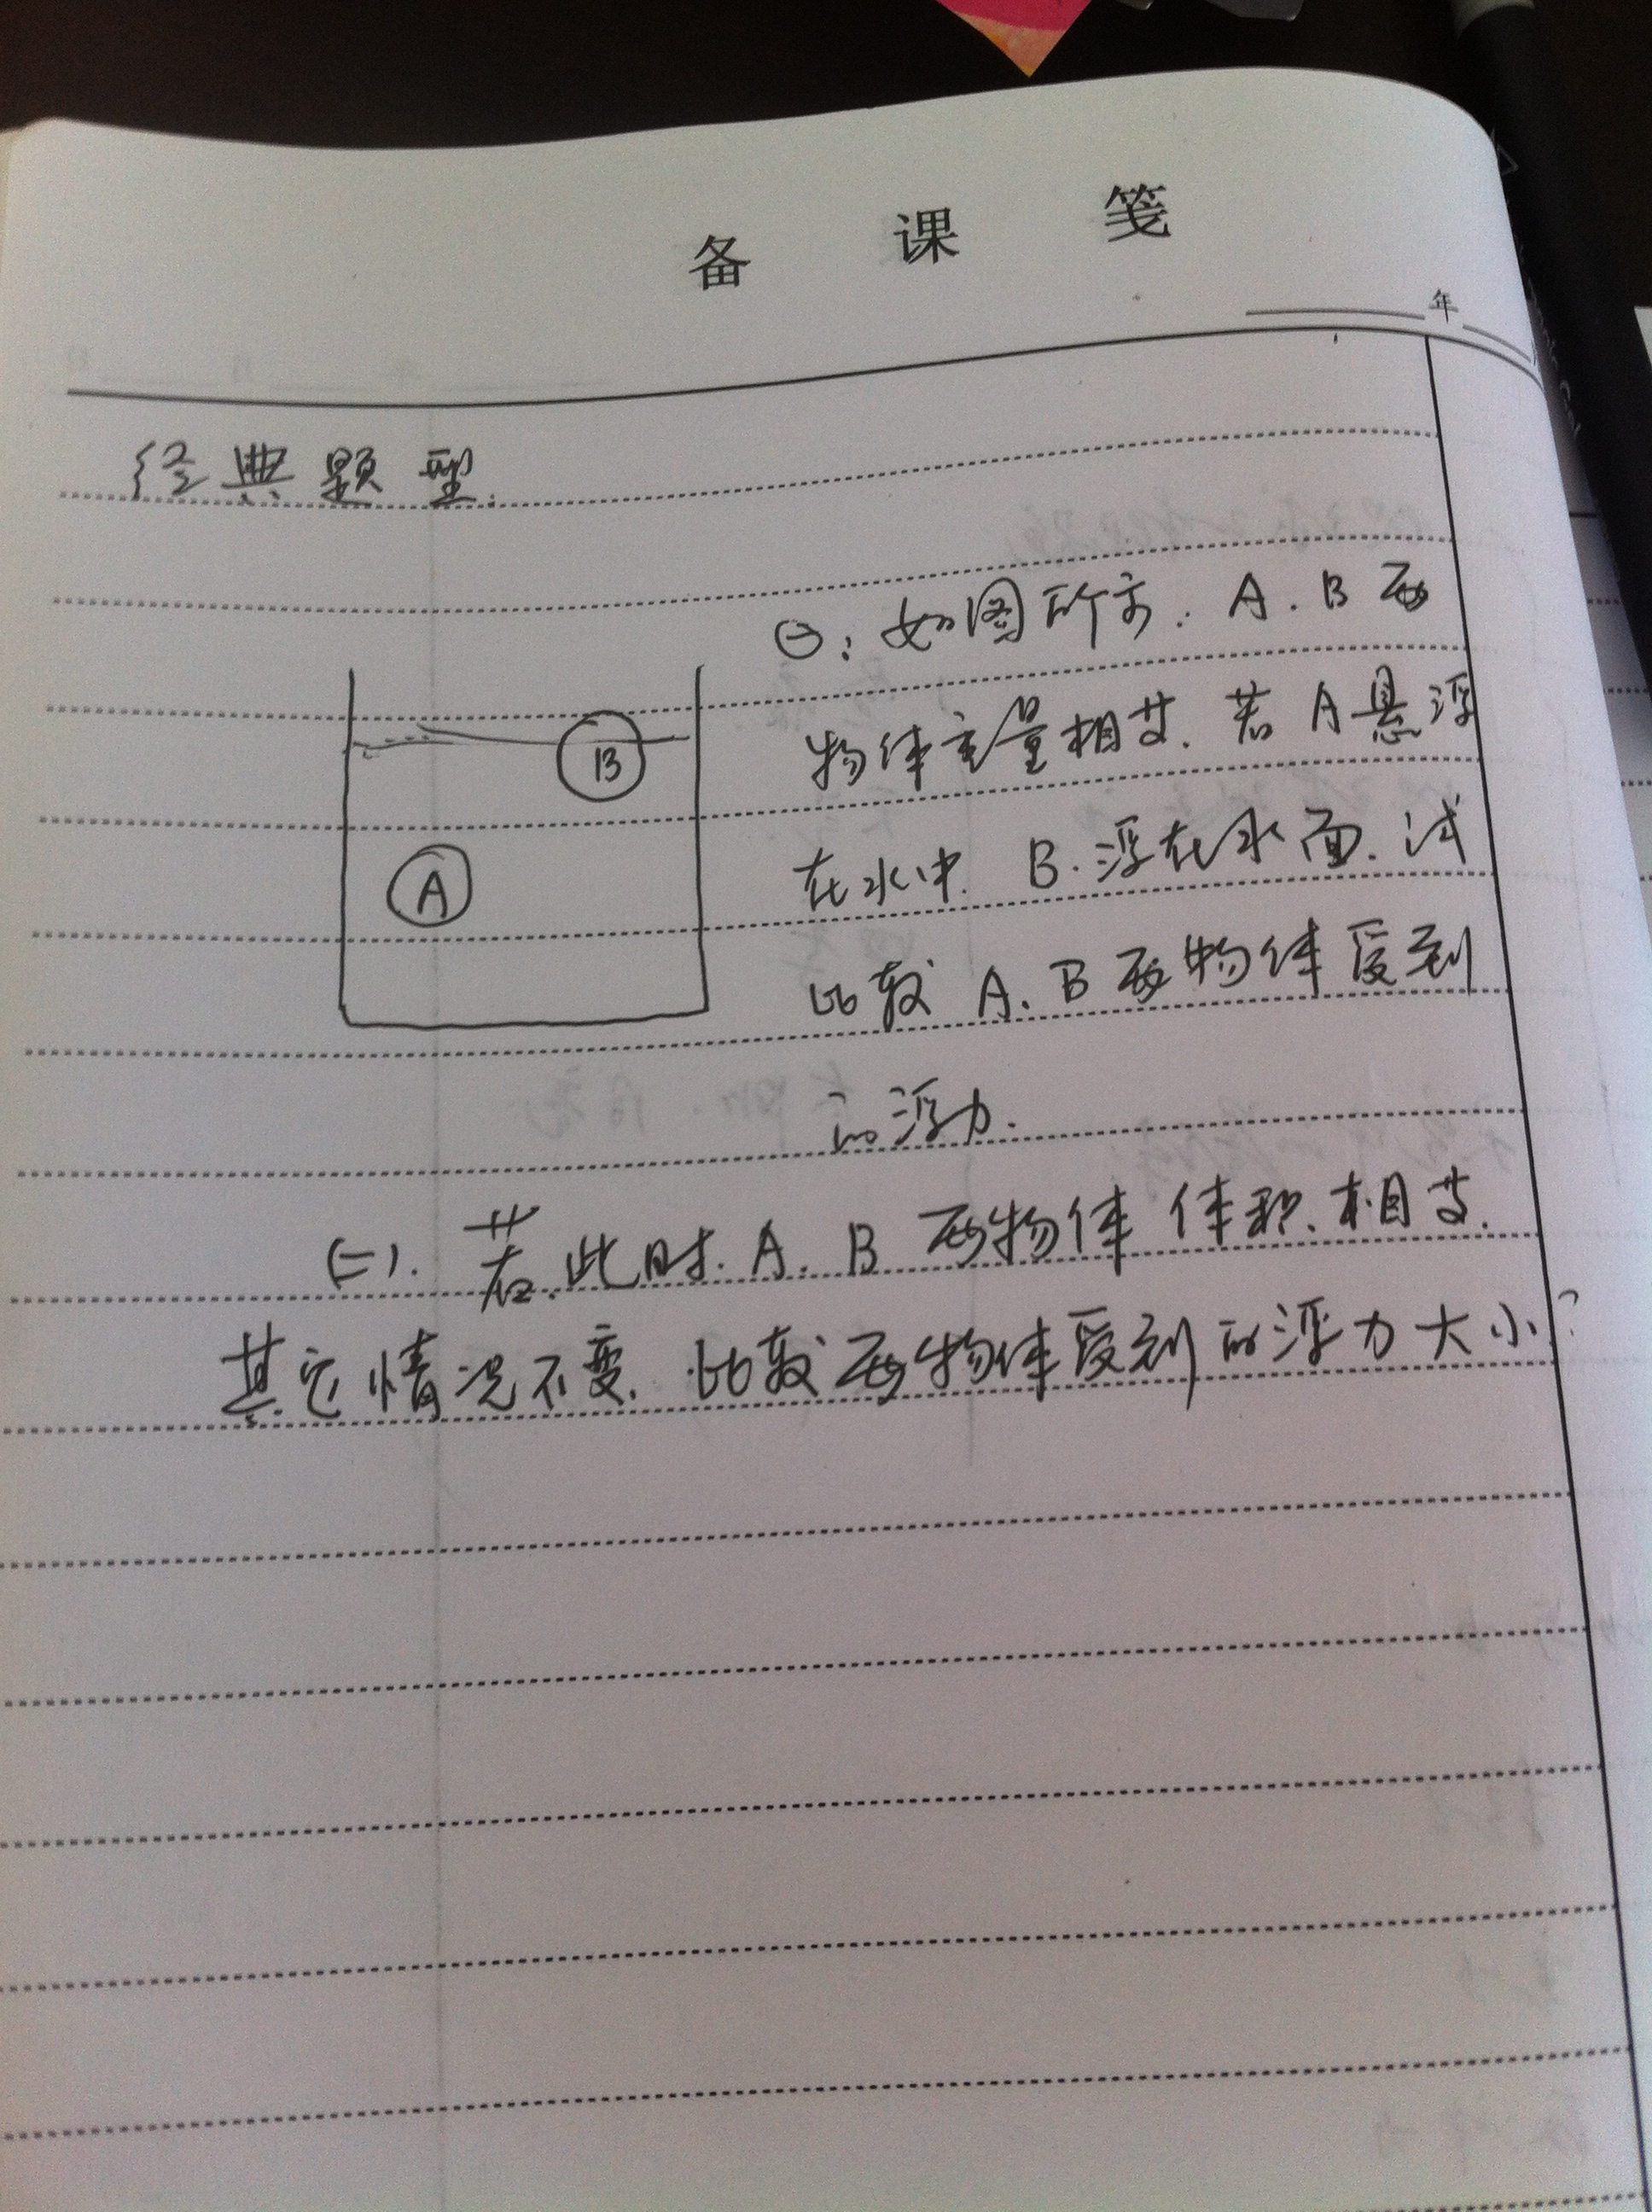 备 课 笺
年
经典题型.
㊀: 如图所示. A. B 两
物体重量相等. 若 A 悬浮
在水中. B. 浮在水面. 试
比较 A. B 两物体受到
的浮力.
B
A
(二). 若此时. A. B 两物体体积. 相等.
其它情况不变. 比较两物体受到的浮力大小?